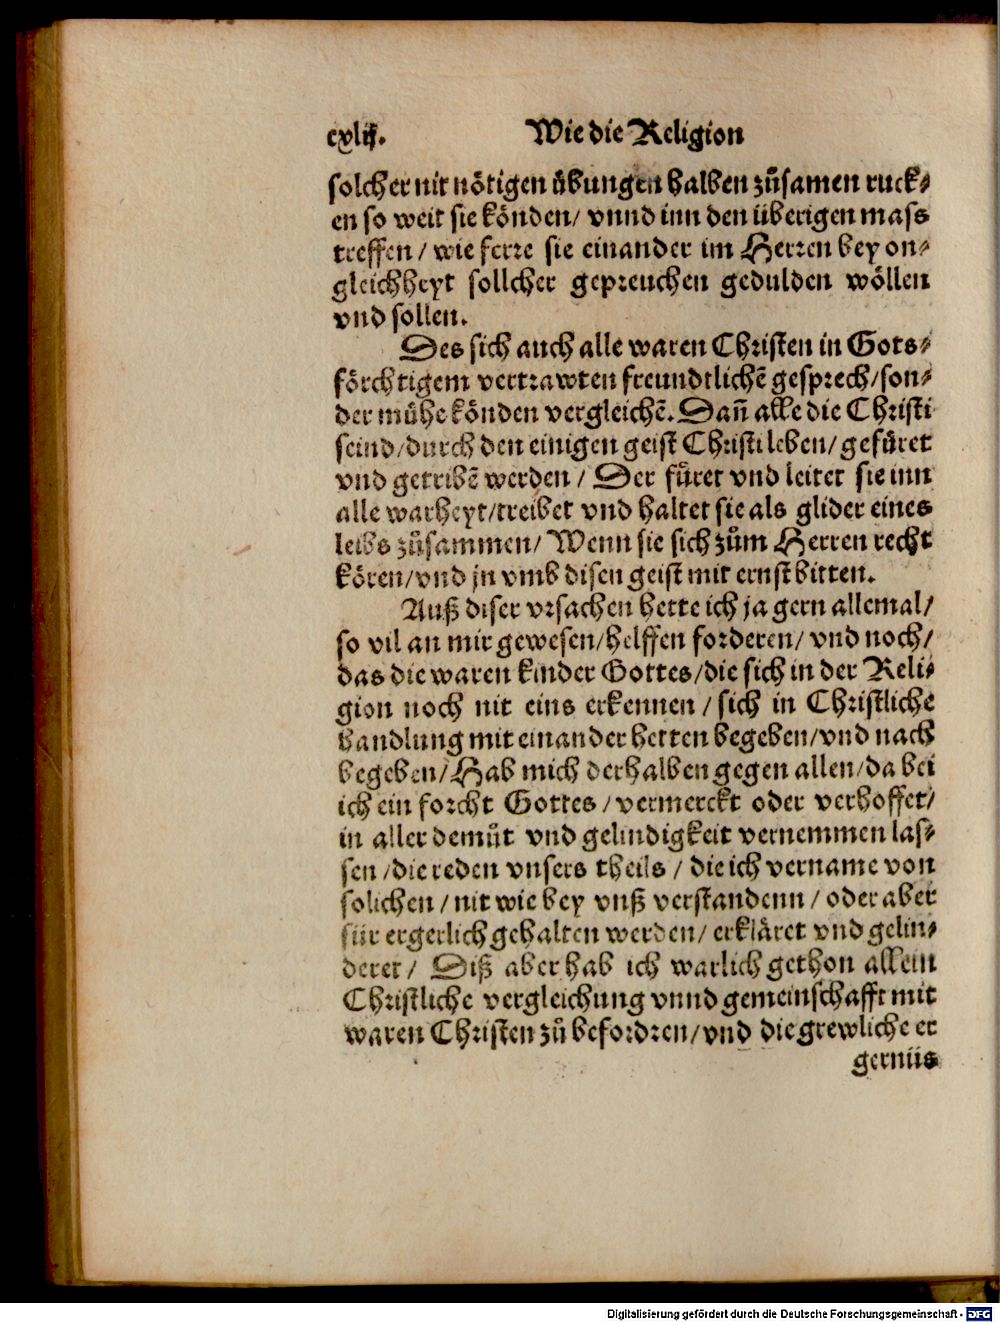 cxlij. Wie die Religion
solcher nit nötigen übungen halben zůsamen ruck⸗
en so weit sie könden/ vnnd inn den überigen mass
treffen/ wie ferre sie einander im Herren bey on⸗
gleichheyt sollcher gepreuchen gedulden wöllen
vnd sollen.
Des sich auch alle waren Christen in Gots⸗
förchtigem vertrawten freundtlichē gesprech/son⸗
der mühe könden vergleichē. Dañ alle die Christi
seind/durch den einigen geist Christi leben/ gefüret
vnd getribē werden/ Der füret vnd leitet sie inn
alle warheyt/treibet vnd haltet sie als glider eines
leibs zůsammen/ Wenn sie sich zům Herren recht
kören/vnd jn vmb disen geist mit ernst bitten.
Auß diser vrsachen hette ich ja gern allemal/
so vil an mir gewesen/helffen forderen/ vnd noch/
das die waren kinder Gottes/die sich in der Reli⸗
gion noch nit eins erkennen/ sich in Christliche
handlung mit einander hetten begeben/vnd nach
begeben/Hab mich derhalben gegen allen/da bei
ich ein forcht Gottes/vermerckt oder verhoffet/
in aller demůt vnd gelindigkeit vernemmen las⸗
sen/die reden vnsers theils/ die ich vername von
solichen/ nit wie bey vnß verstandenn/ oder aber
für ergerlich gehalten werden/ erkläret vnd gelin⸗
deret/ Diß aber hab ich warlich gethon allein
Christliche vergleichung vnnd gemeinschafft mit
waren Christen zů befordren/vnd die grewliche er
gernüs
Digitalisierung gefördert durch die Deutsche Forschungsgemeinschaft - DFG